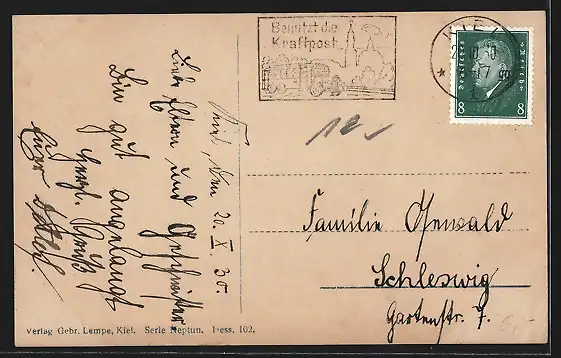 Benutzt die
Kraftpost
KIEL
DEUTSCHES REICH
8 8
12
Kiel, den 20. X. 30.
Liebe Eltern und Geschwister
Bin gut angelangt
Herzl. Gruß
Euer
Familie
Schleswig
Gartenstr. 7.
Verlag Gebr. Lempe, Kiel. Serie Neptun. Dess. 102.